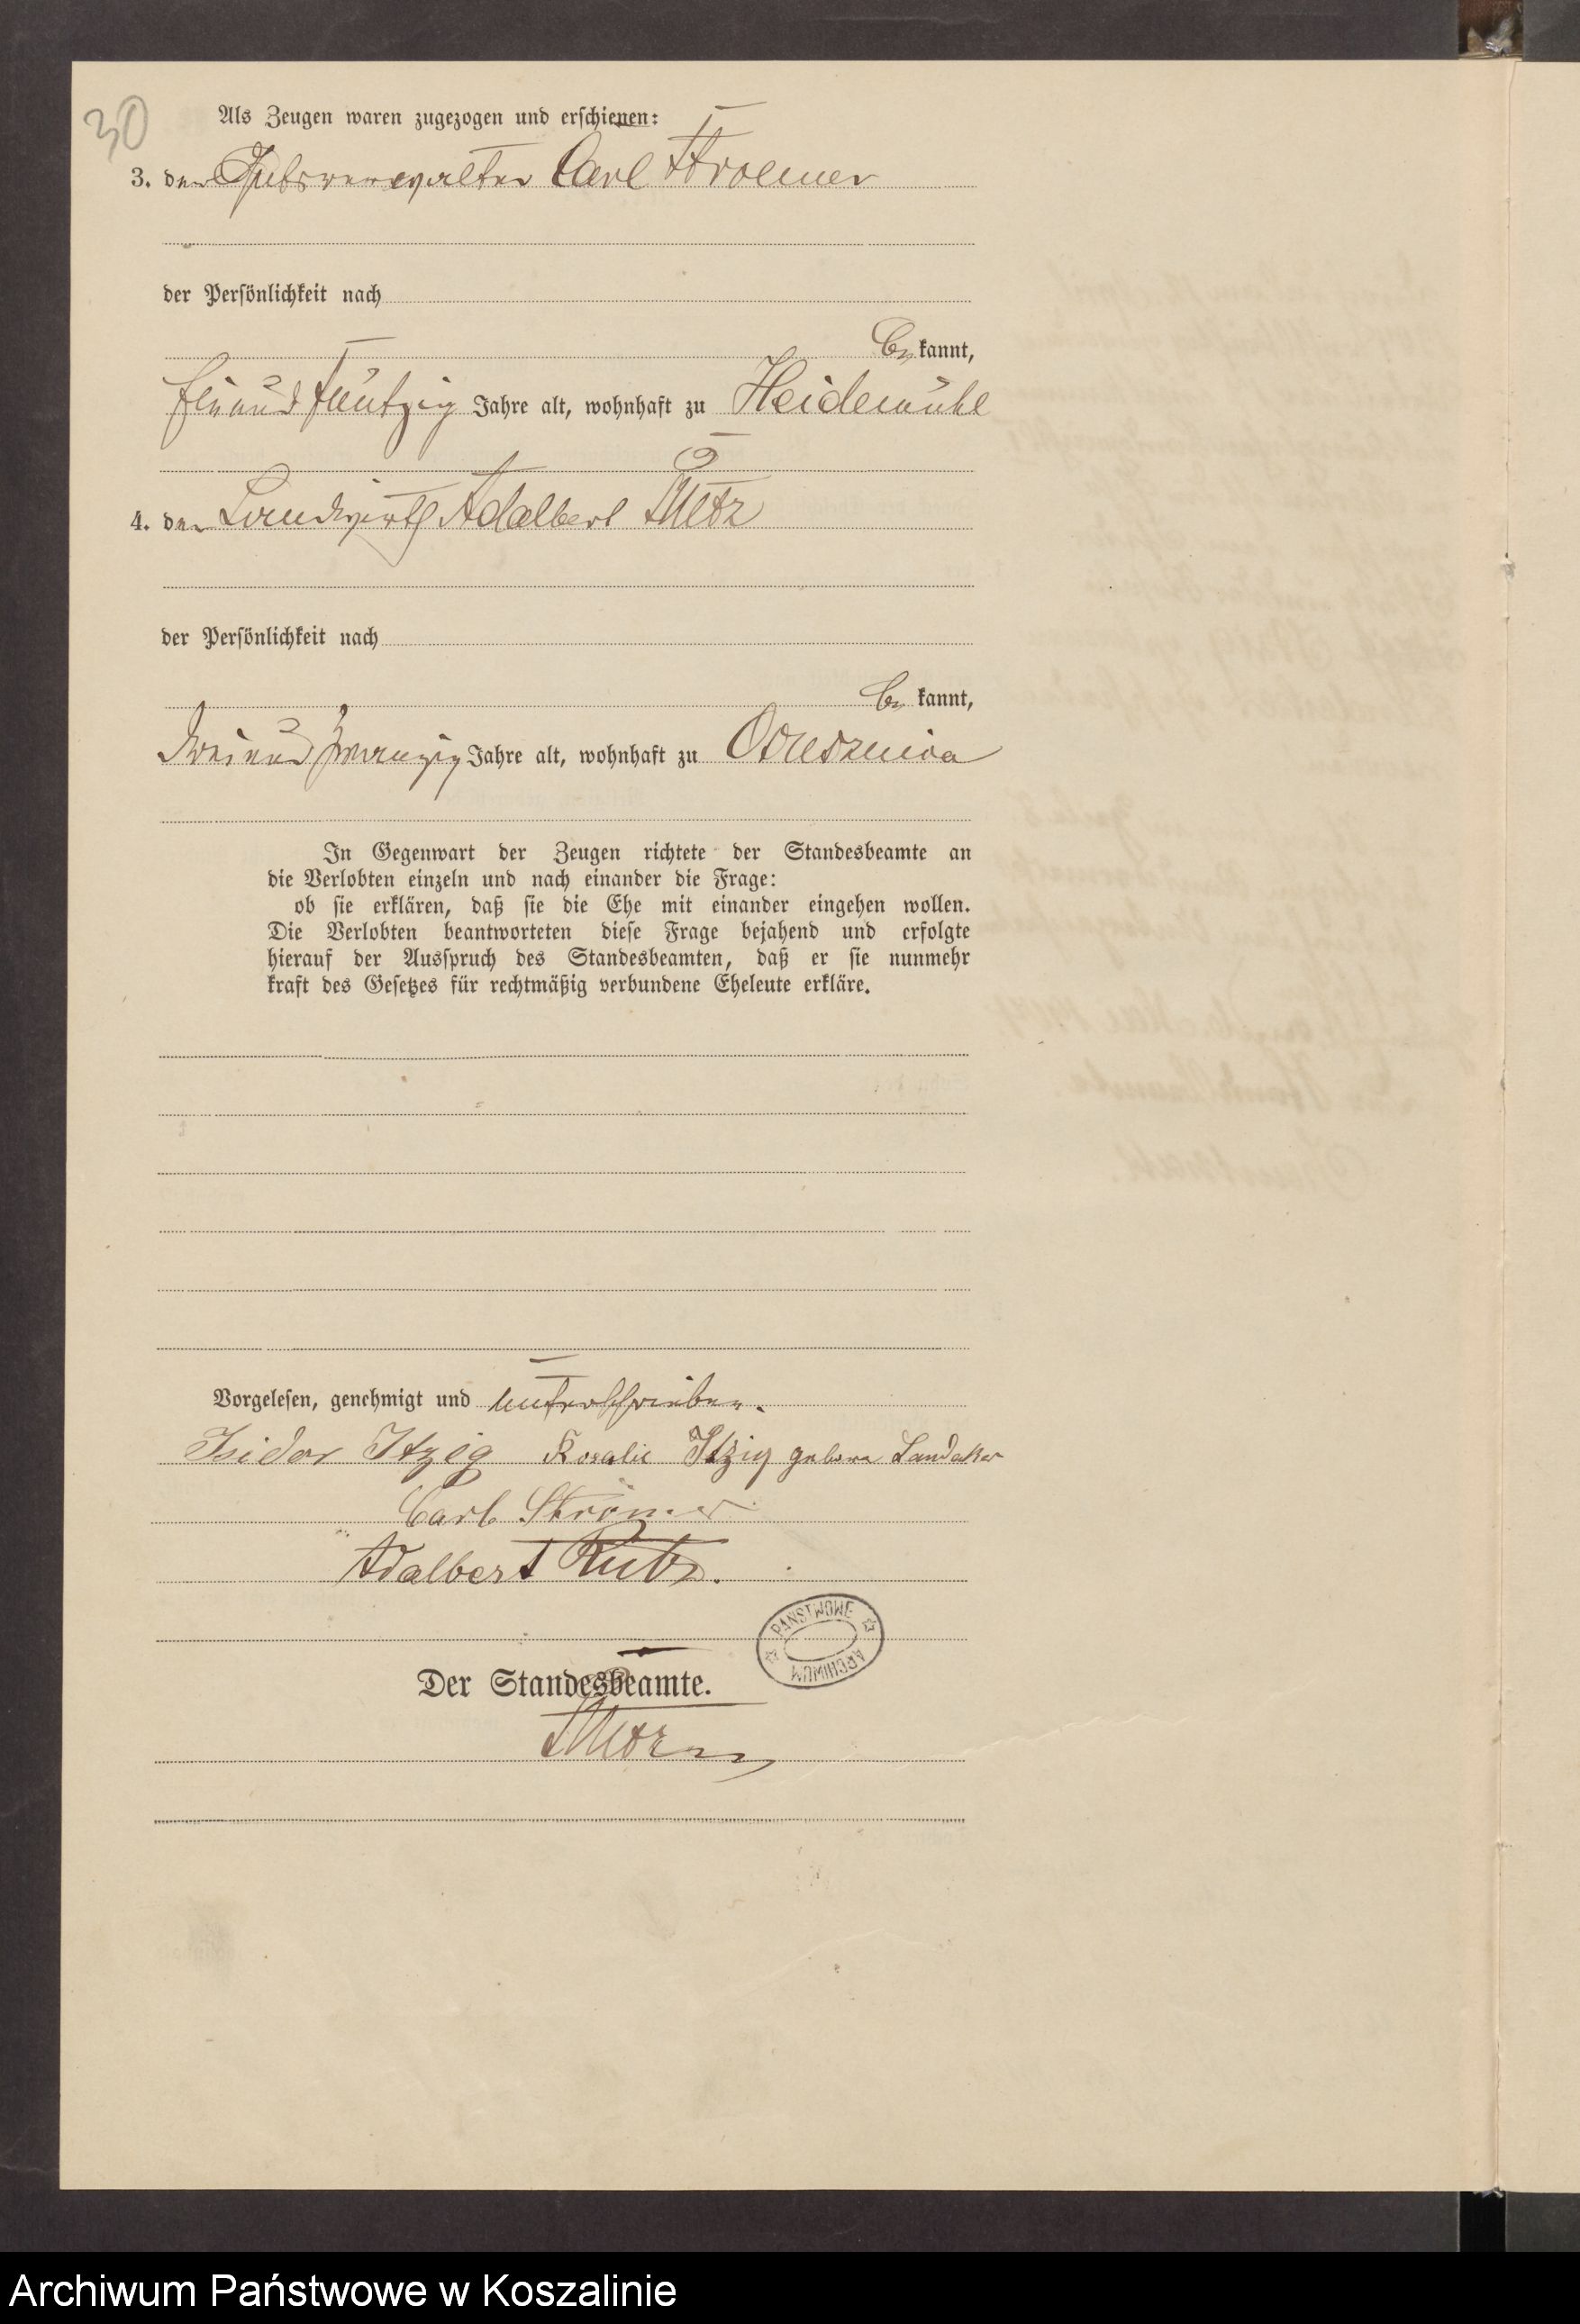 30
Als Zeugen waren zugezogen und erschienen:
3. der Gutsverwalter Carl Stroemer
der Persönlichkeit nach
be kannt,
Jahre alt, wohnhaft zu Heidemühl
4. der Landwirth Adalbert Rutz
der Persönlichkeit nach
be kannt,
zwei und zwanzig Jahre alt, wohnhaft zu Ossusznica
In Gegenwart der Zeugen richtete der Standesbeamte an
die Verlobten einzeln und nach einander die Frage:
ob sie erklären, daß sie die Ehe mit einander eingehen wollen.
Die Verlobten beantworteten diese Frage bejahend und erfolgte
hierauf der Ausspruch des Standesbeamten, daß er sie nunmehr
kraft des Gesetzes für rechtmäßig verbundene Eheleute erkläre.
Vorgelesen, genehmigt und unterschrieben.
Isidor Itzig Rosalie Itzig geborene Landecker
Carl Strömer
Adalbert Rutz.
PAŃSTWOWE ARCHIWUM
Der Standesbeamte.
Archiwum Państwowe w Koszalinie